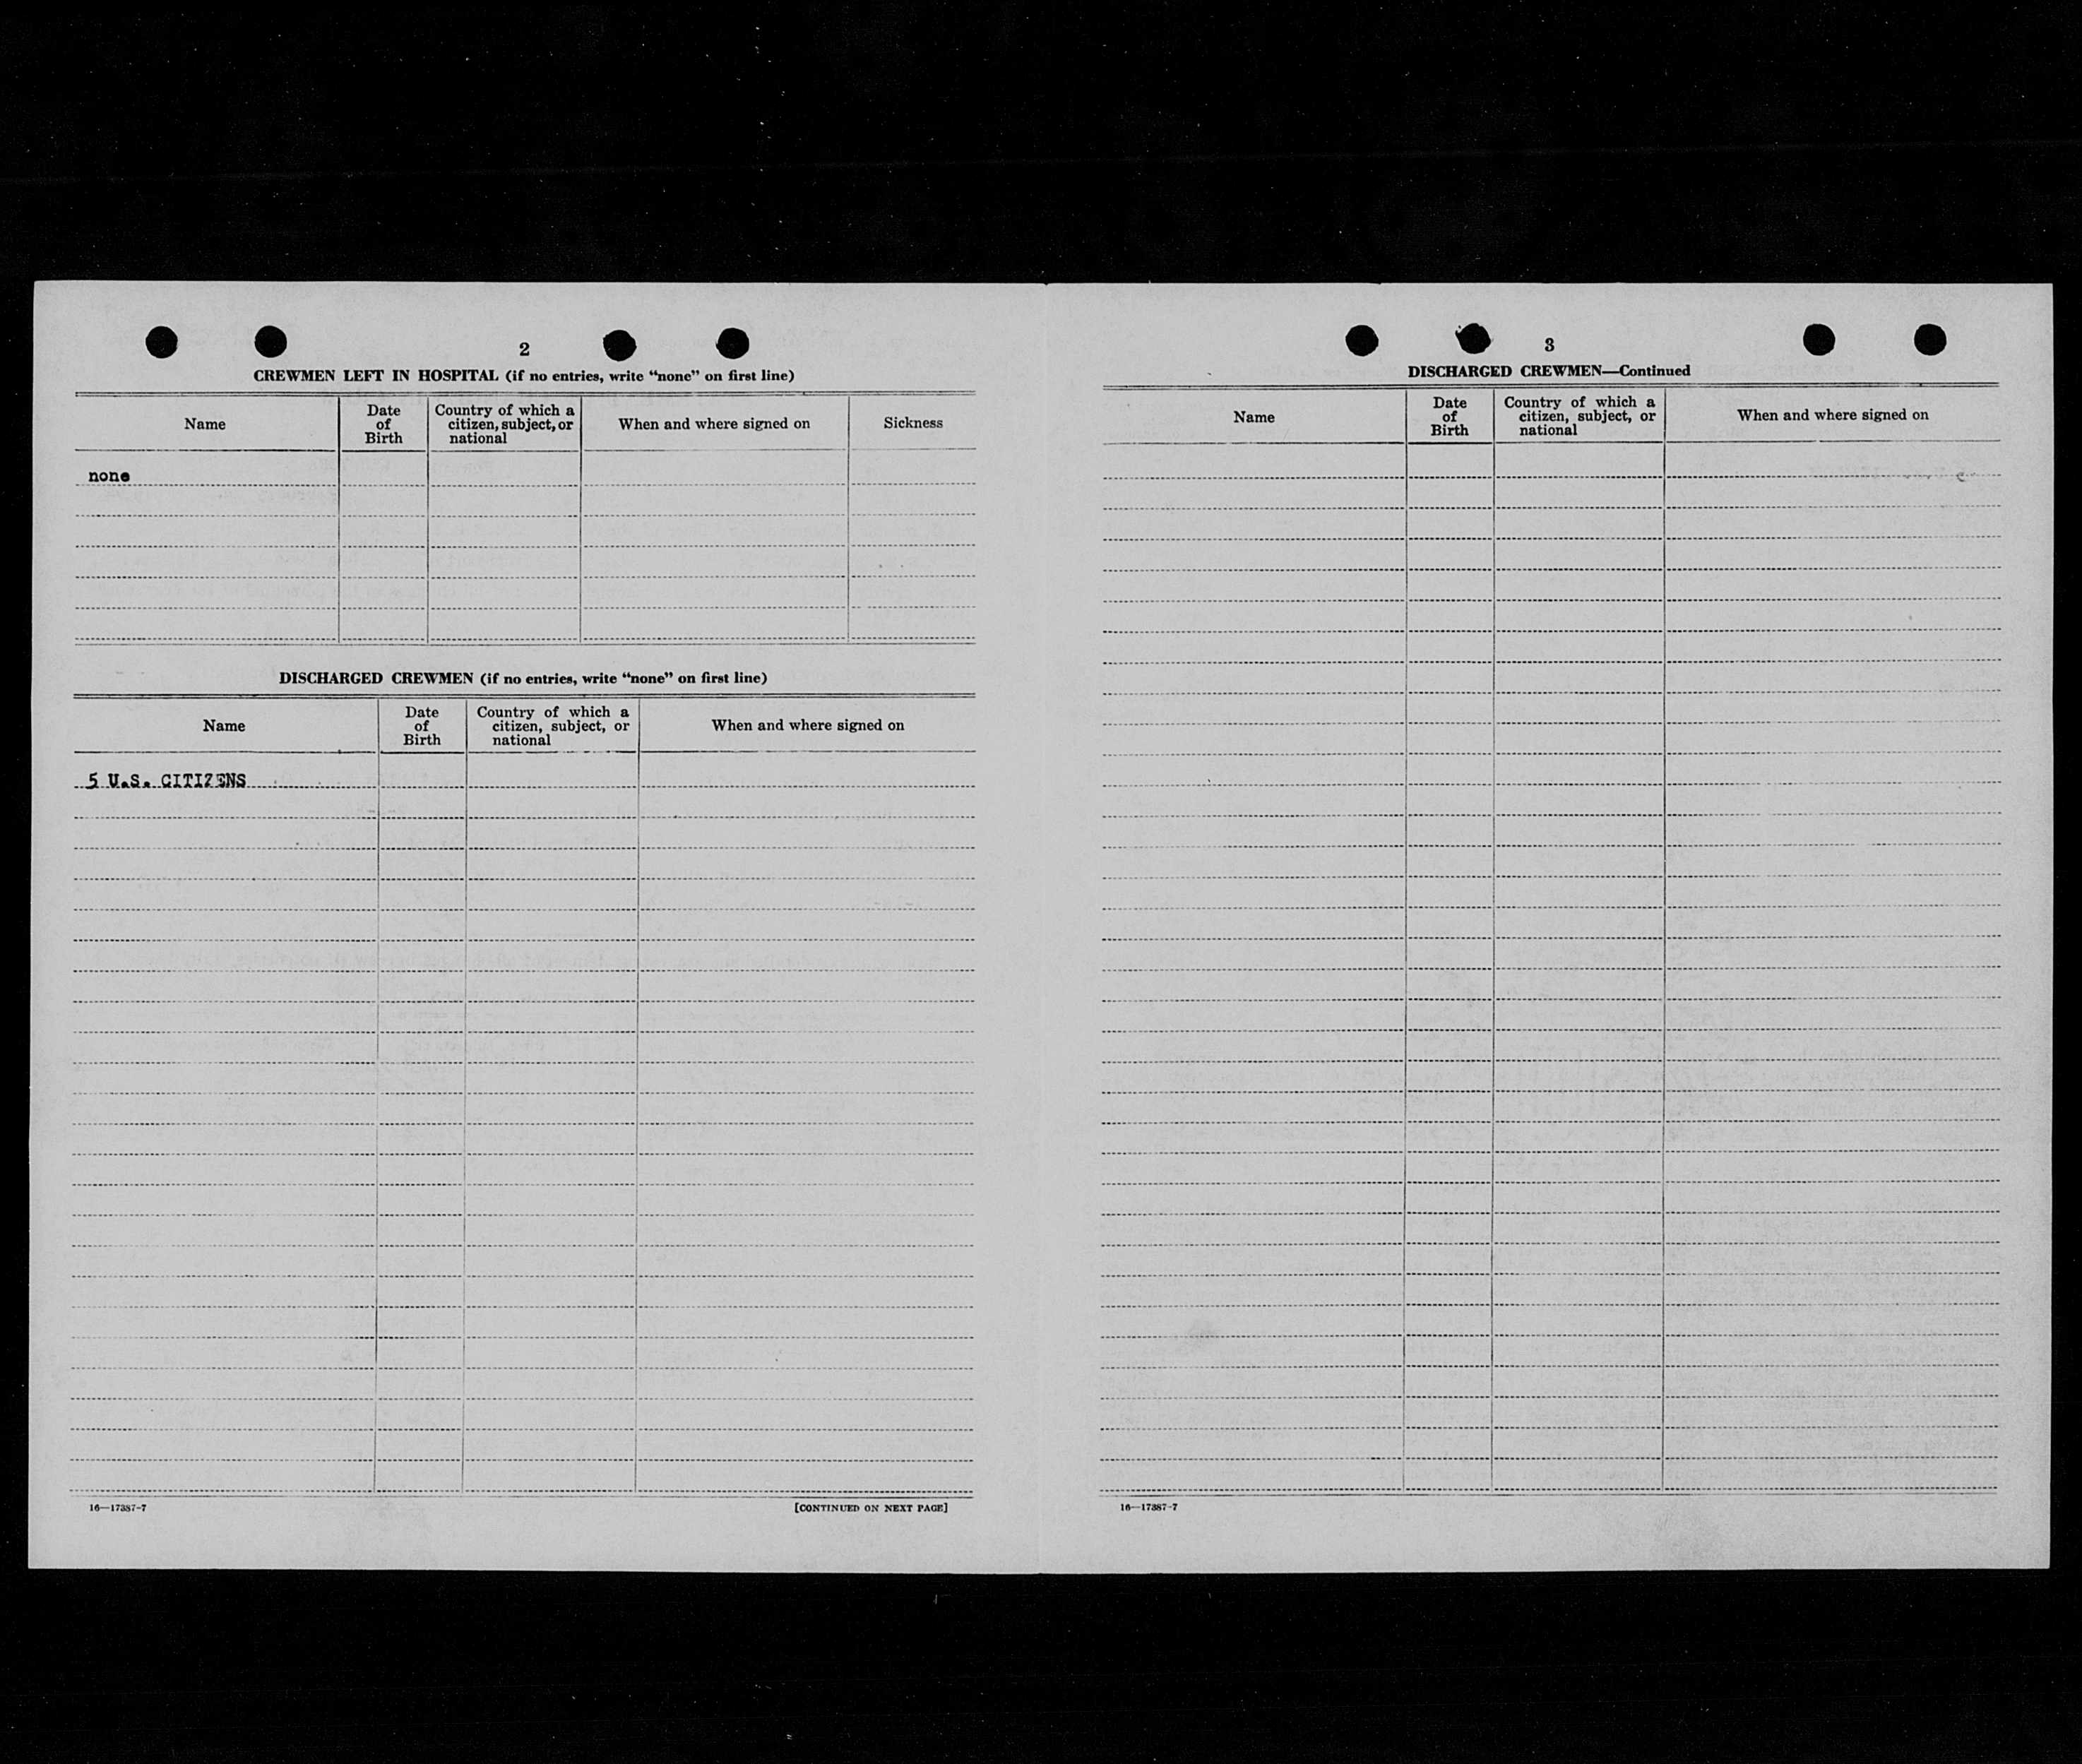 2
CREWMEN LEFT IN HOSPITAL (if no entries, write “none” on first line)
Name
Date of Birth
Country of which a citizen, subject, or national
When and where signed on
Sickness
none
DISCHARGED CREWMEN (if no entries, write “none” on first line)
Name
Date of Birth
Country of which a citizen, subject, or national
When and where signed on
5 U.S. CITIZENS
16—17387-7
[CONTINUED ON NEXT PAGE]
3
DISCHARGED CREWMEN—Continued
Name
Date of Birth
Country of which a citizen, subject, or national
When and where signed on
16—17387-7